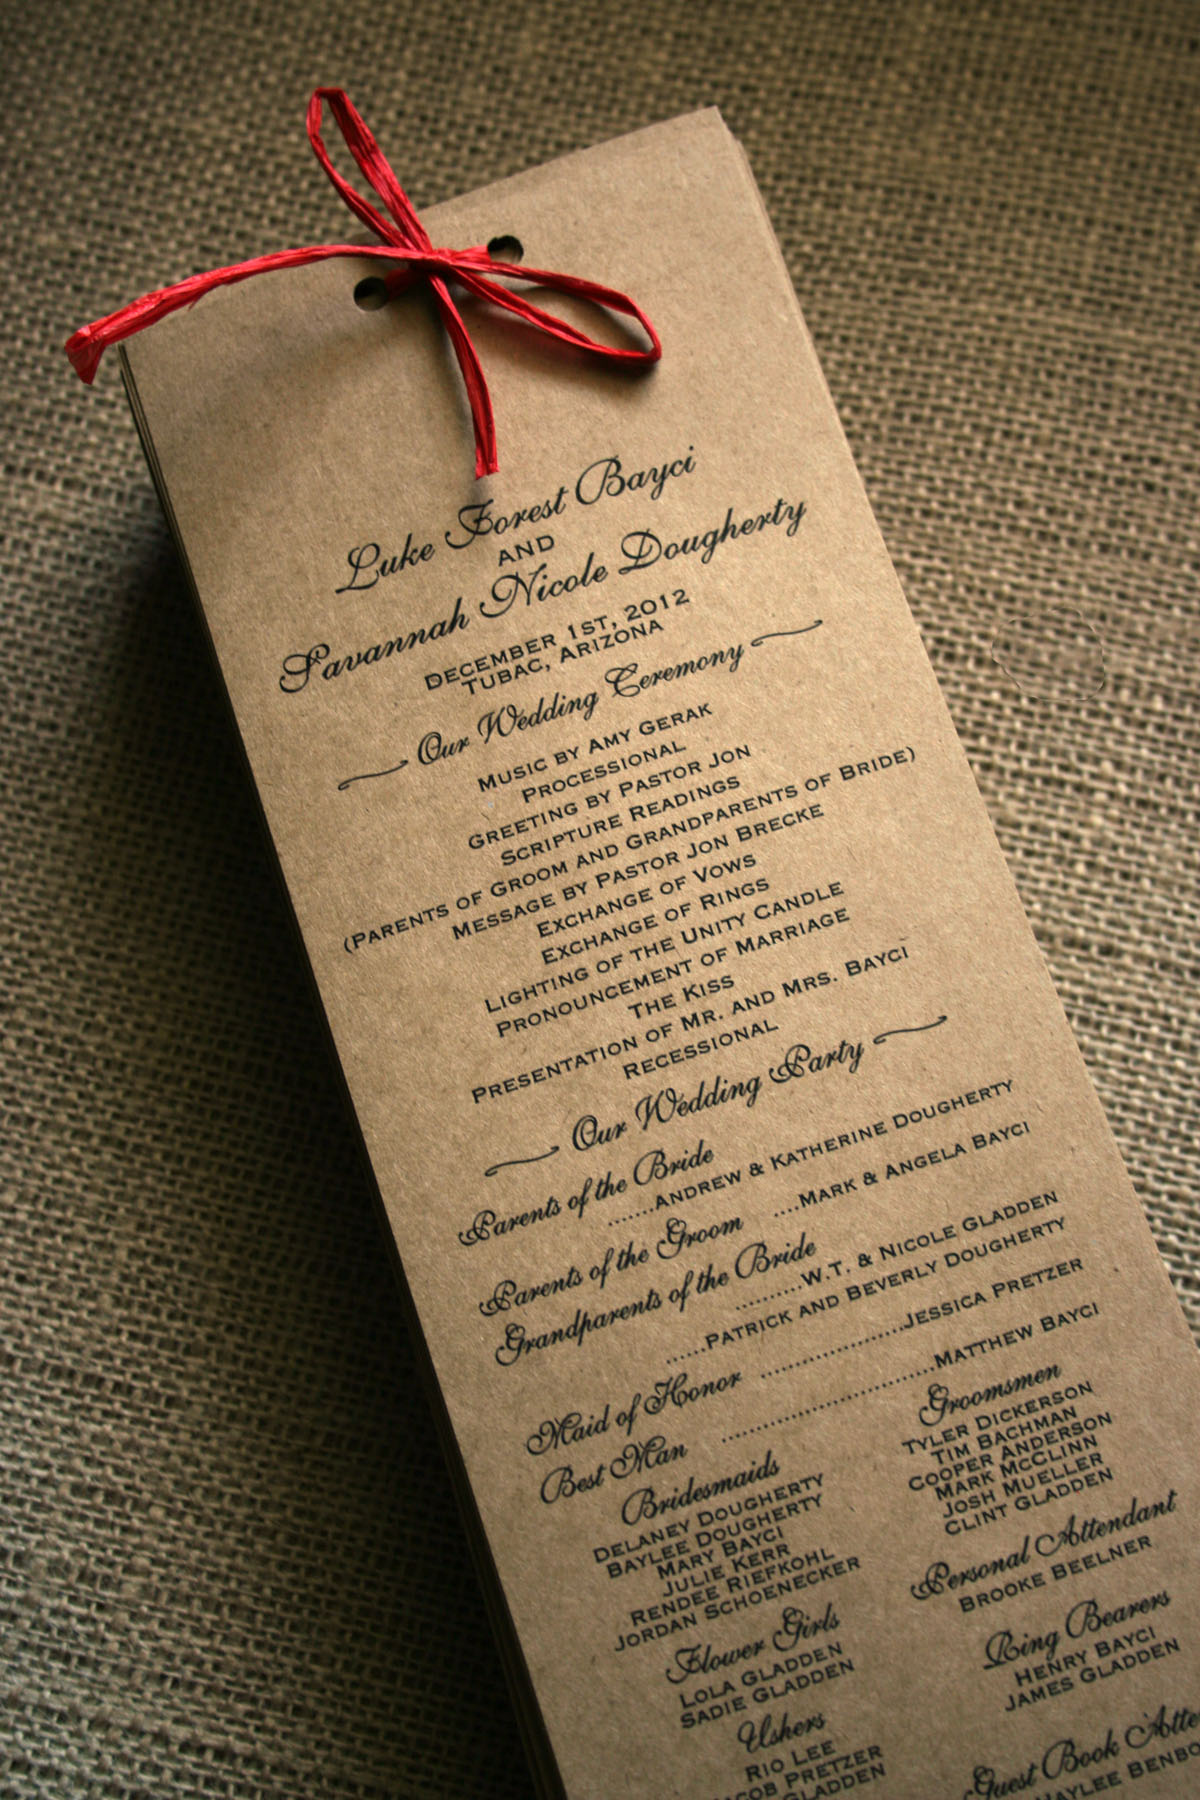 Luke Forest Bayci
AND
Savannah Nicole Dougherty
DECEMBER 1ST, 2012
TUBAC, ARIZONA
Our Wedding Ceremony
MUSIC BY AMY GERAK
PROCESSIONAL
GREETING BY PASTOR JON
SCRIPTURE READINGS
(PARENTS OF GROOM AND GRANDPARENTS OF BRIDE)
MESSAGE BY PASTOR JON BRECKE
EXCHANGE OF VOWS
EXCHANGE OF RINGS
LIGHTING OF THE UNITY CANDLE
PRONOUNCEMENT OF MARRIAGE
THE KISS
PRESENTATION OF MR. AND MRS. BAYCI
RECESSIONAL
Our Wedding Party
Parents of the Bride
.......ANDREW & KATHERINE DOUGHERTY
Parents of the Groom ....MARK & ANGELA BAYCI
Grandparents of the Bride
..........W.T. & NICOLE GLADDEN
......PATRICK AND BEVERLY DOUGHERTY
Maid of Honor ......................JESSICA PRETZER
Best Man .................................MATTHEW BAYCI
Bridesmaids
DELANEY DOUGHERTY
BAYLEE DOUGHERTY
MARY BAYCI
JULIE KERR
RENDEE RIEFKOHL
JORDAN SCHOENECKER
Flower Girls
LOLA GLADDEN
SADIE GLADDEN
Ushers
RIO LEE
ACOB PRETZER
GLADDEN
Groomsmen
TYLER DICKERSON
TIM BACHMAN
COOPER ANDERSON
MARK MCCLINN
JOSH MUELLER
CLINT GLADDEN
Personal Attendant
BROOKE BEELNER
Ring Bearers
HENRY BAYCI
JAMES GLADDEN
Guest Book Atte
AYLEE BENBO